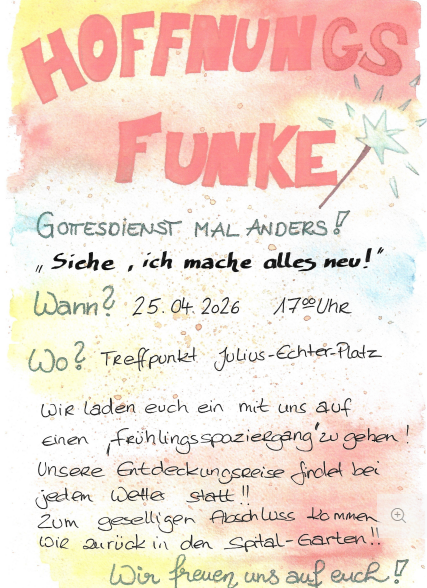 HOFFNUNGS
FUNKE
GOTTESDIENST MAL ANDERS!
"Siehe, ich mache alles neu!"
Wann? 25.04.2026 17⁰⁰ Uhr
Wo? Treffpunkt Julius-Echter-Platz
Wir laden euch ein mit uns auf
einen 'Frühlingsspaziergang' zu gehen!
Unsere Entdeckungsreise findet bei
jedem Wetter statt!!
Zum geselligen Abschluss kommen
wir zurück in den Spital-Garten!!
Wir freuen uns auf euch!